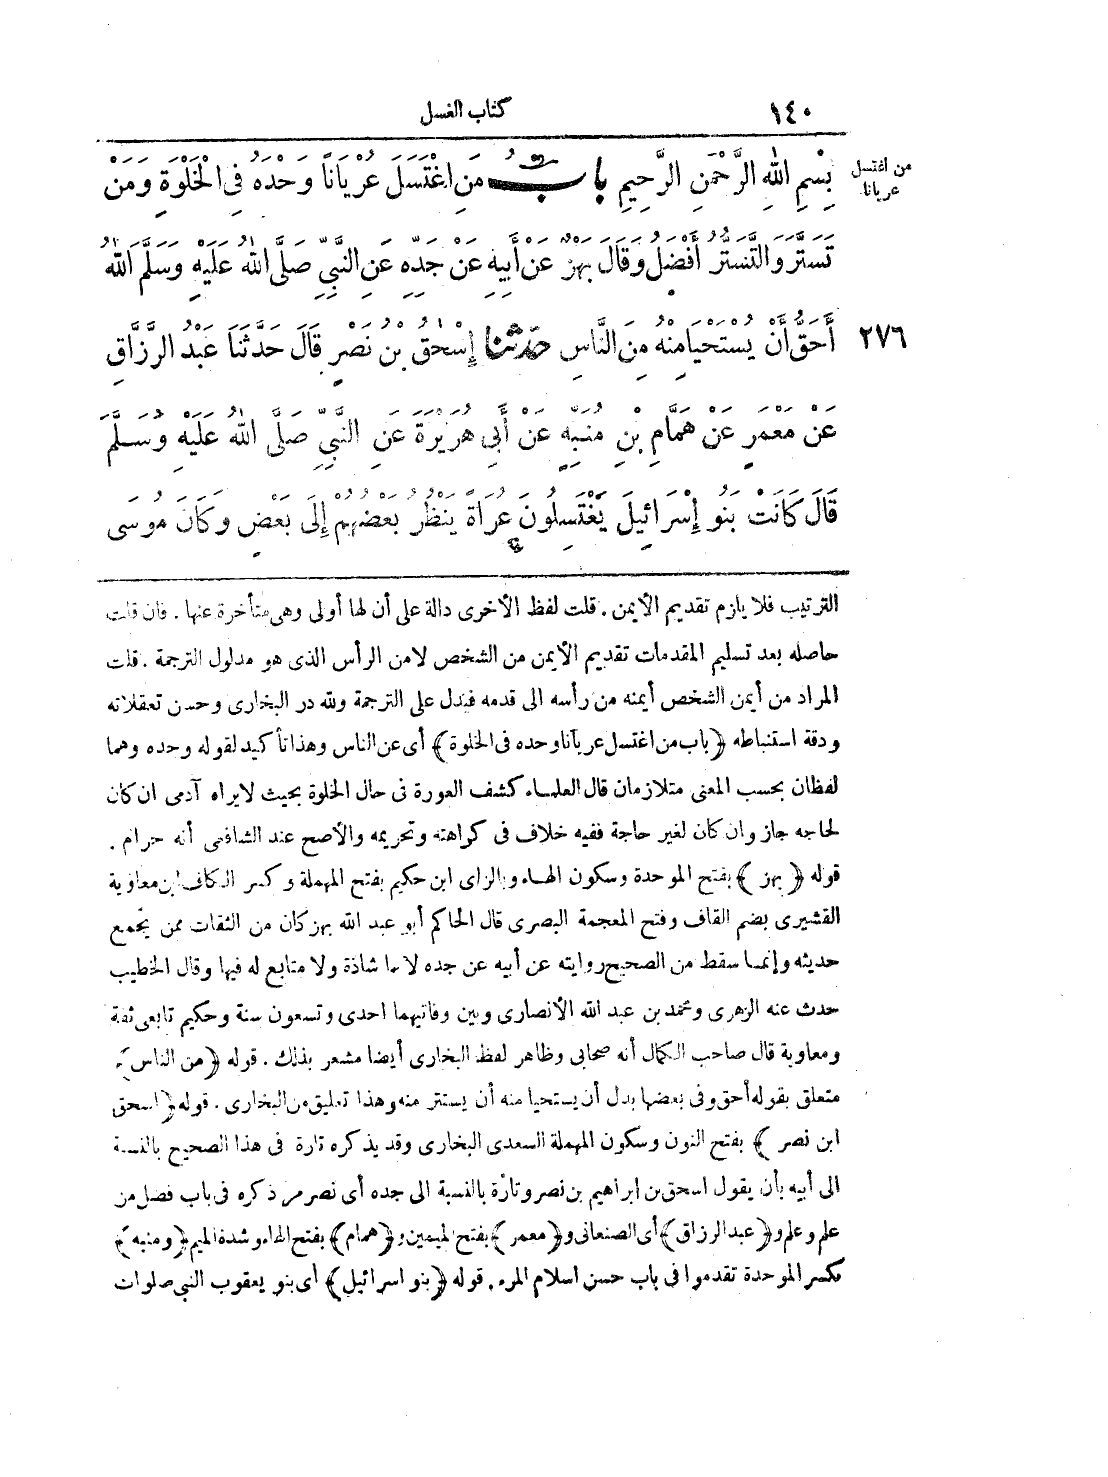 ١٤٠ كتاب الغسل
من اغتسل
عريانا
بِسْمِ اللهِ الرَّحْمَنِ الرَّحِيمِ بابُ مَنِ اغْتَسَلَ عُرْيَاناً وَحْدَهُ فِى الْخَلْوَةِ وَمَنْ
تَسَتَّرَ وَالتَّسَتُّرُ أَفْضَلُ وَقَالَ بَهْزٌ عَنْ أَبِيهِ عَنْ جَدِّهِ عَنِ النَّبِىِّ صَلَّى اللهُ عَلَيْهِ وَسَلَّمَ اللهُ
٢٧٦ أَحَقُّ أَنْ يُسْتَحْيَا مِنْهُ مِنَ النَّاسِ حدّثنا إِسْحٰقُ بْنُ نَصْرٍ قَالَ حَدَّثَنَا عَبْدُ الرَّزَّاقِ
عَنْ مَعْمَرٍ عَنْ هَمَّامِ بْنِ مُنَبِّهٍ عَنْ أَبِى هُرَيْرَةَ عَنِ النَّبِىِّ صَلَّى اللهُ عَلَيْهِ وَسَلَّمَ
قَالَ كَانَتْ بَنُو إِسْرَائِيلَ يَغْتَسِلُونَ عُرَاةً يَنْظُرُ بَعْضُهُمْ إِلَى بَعْضٍ وَكَانَ مُوسَى
الترتيب فلا يلزم تقديم الأيمن . قلت لفظ الأخرى دالة على أن لها أولى وهى متأخرة عنها . فان قلت
حاصله بعد تسليم المقدمات تقديم الأيمن من الشخص لا من الرأس الذى هو مدلول الترجمة . قلت
المراد من أيمن الشخص أيمنه من رأسه الى قدمه فيدل على الترجمة ولله در البخارى وحسن تعقلاته
ودقة استنباطه ﴿باب من اغتسل عريانا وحده فى الخلوة﴾ أى عن الناس وهذا تأكيد لقوله وحده وهما
لفظان بحسب المعنى متلازمان قال العلماء كشف العورة فى حال الخلوة بحيث لا يراه آدمى ان كان
لحاجه جاز وان كان لغير حاجة ففيه خلاف فى كراهته وتحريمه والأصح عند الشافعى أنه حرام .
قوله ﴿بهز﴾ بفتح الموحدة وسكون الهاء وبالزاى ابن حكيم بفتح المهملة وكسر الكاف ابن معاوية
القشيرى بضم القاف وفتح المعجمة البصرى قال الحاكم أبو عبد الله بهز كان من الثقات ممن يجمع
حديثه وإنما سقط من الصحيح روايته عن أبيه عن جده لأنها شاذة ولا متابع له فيها وقال الخطيب
حدث عنه الزهرى ومحمد بن عبد الله الأنصارى وبين وفاتيهما احدى وتسعون سنة وحكيم تابعى ثقة
ومعاوية قال صاحب الكمال أنه صحابى وظاهر لفظ البخارى أيضا مشعر بذلك . قوله ﴿من الناس﴾
متعلق بقوله أحق وفى بعضها بدل أن يستحيا منه أن يستتر منه وهذا تعليق من البخارى . قوله ﴿اسحق
ابن نصر﴾ بفتح النون وسكون المهملة السعدى البخارى وقد يذكره تارة فى هذا الصحيح بالنسبة
الى أبيه بأن يقول اسحق بن ابراهيم بن نصر وتارة بالنسبة الى جده أى نصر مر ذكره فى باب فضل من
علم وعلم و﴿عبد الرزاق﴾ أى الصنعانى و﴿معمر﴾ بفتح الميمين و﴿همام﴾ بفتح الهاء وشدة الميم ﴿ومنبه﴾
بكسر الموحدة تقدموا فى باب حسن اسلام المرء . قوله ﴿بنو اسرائيل﴾ أى بنو يعقوب النبى صلوات